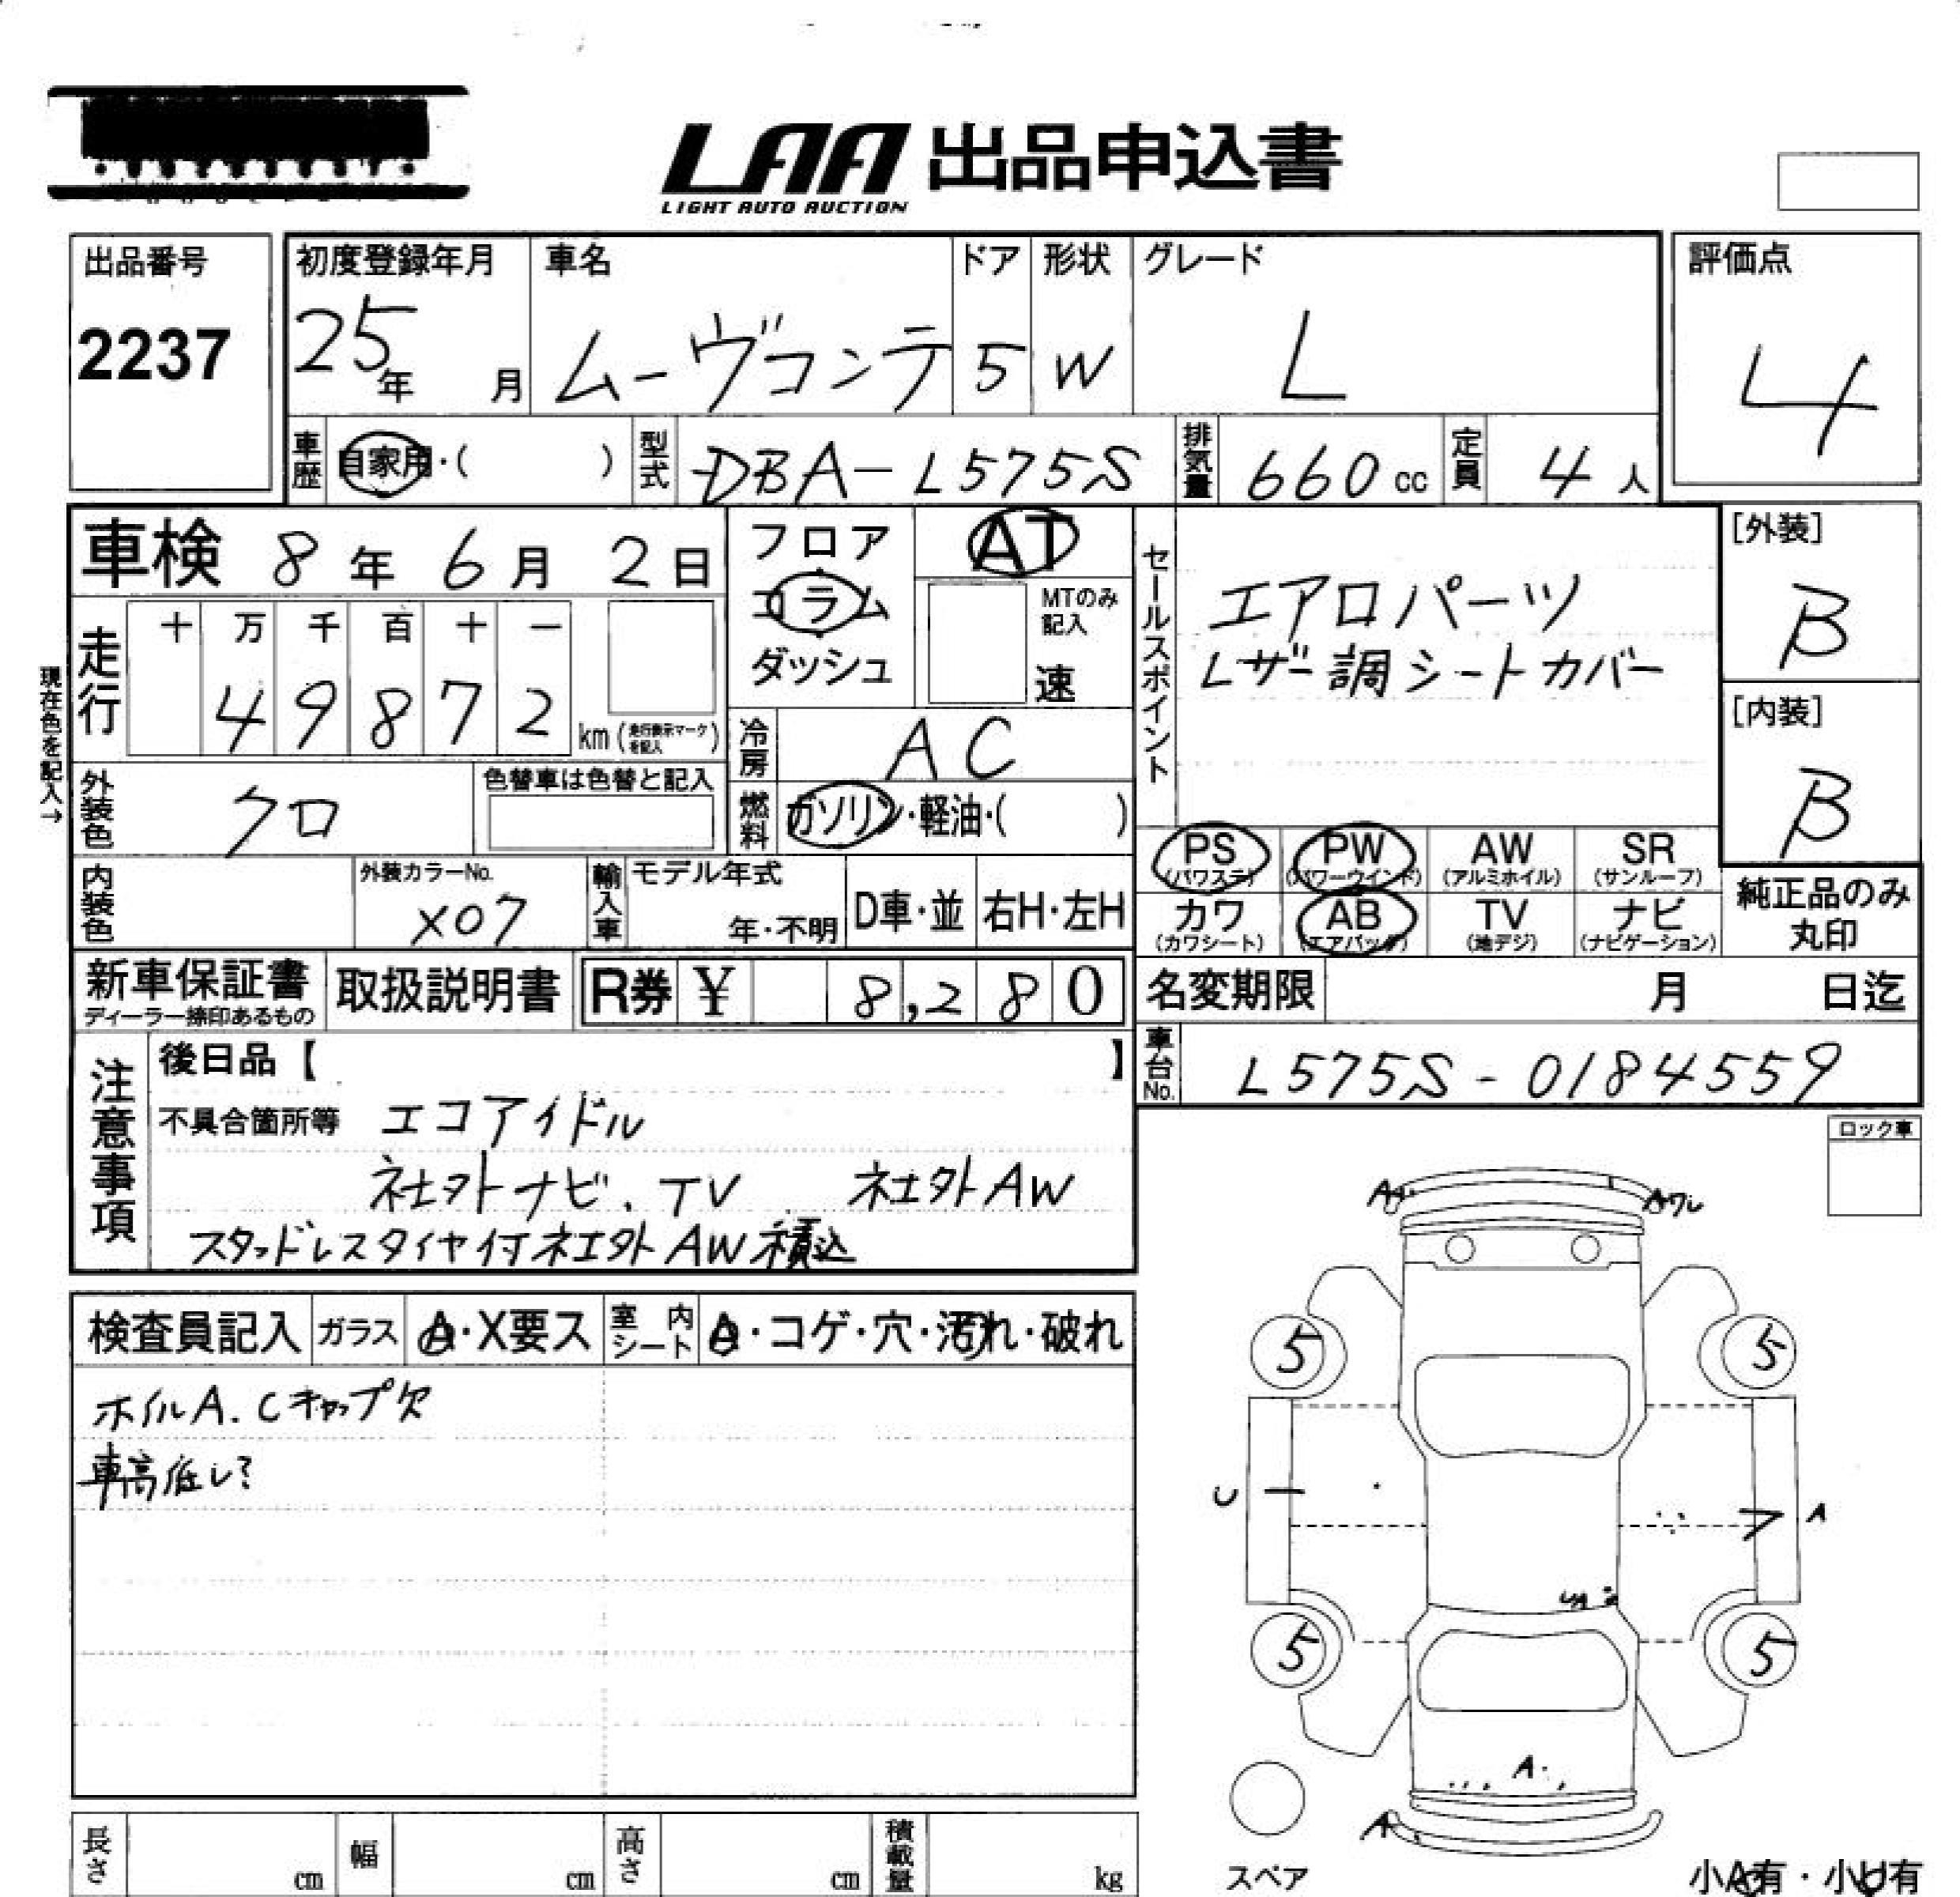 LAA 出品申込書
LIGHT AUTO AUCTION
出品番号
2237
初度登録年月
25年 月
車名
ムーヴコンテ
ドア
5
形状
W
グレード
L
評価点
4
車歴 自家用・( )
型式 DBA-L575S
排気量 660 cc
定員 4 人
車検 8年 6月 2日
フロア
コラム
ダッシュ
AT
MTのみ記入
速
セールスポイント
エアロパーツ
Lザー調シートカバー
[外装]
B
[内装]
B
現在色を記入→
走行
十 万 千 百 十 一
4 9 8 7 2 km (走行表示マークを記入)
冷房 AC
外装色 クロ
色替車は色替と記入
燃料 ガソリン・軽油・( )
内装色
外装カラーNo.
X07
輸入車
モデル年式
年・不明
D車・並
右H・左H
PS (パワステ)
PW (パワーウインド)
AW (アルミホイル)
SR (サンルーフ)
カワ (カワシート)
AB (エアバッグ)
TV (地デジ)
ナビ (ナビゲーション)
純正品のみ丸印
新車保証書
ディーラー捺印あるもの
取扱説明書
R券 ¥ 8,280
名変期限 月 日迄
車台No. L575S-0184559
注意事項
後日品【 】
不具合箇所等 エコアイドル
社外ナビ.TV 社外AW
スタッドレスタイヤ付社外AW積込
ロック車
検査員記入
ガラス A・X要ス
室内シート A・コゲ・穴・汚れ・破れ
ホイルA.Cキャップ欠
車高低し?
A
Aワレ
5 5
U
A
5 5
A
A
スペア
小A有・小U有
長さ cm
幅 cm
高さ cm
積載量 kg